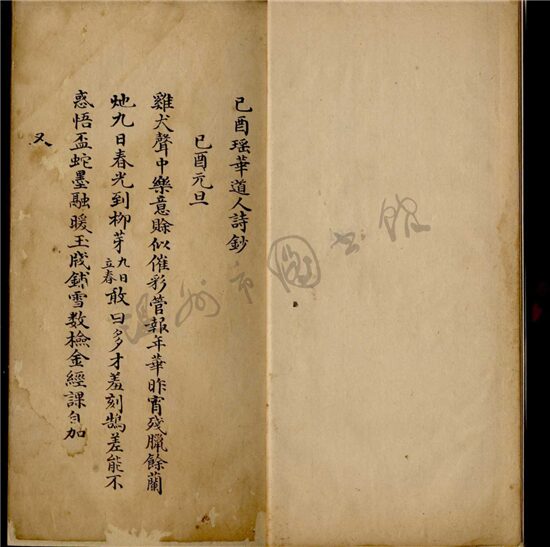 己酉瑶華道人詩鈔
己酉元旦
雞犬聲中樂意賒似催彩管報年華昨宵殘臘餘蘭
灺九日春光到柳芽九日立春敢曰多才羞刻鵠差能不
惑悟盃蛇墨融暖玉牋鋪雪数檢金經課自加
又
市圖书館